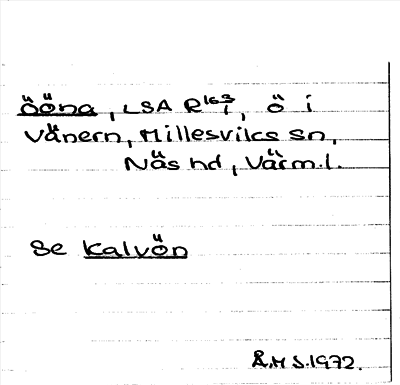 Ööna, LSA R 163/1, ö i
Vänern, Millesviks sn,
Näs hd, Värml.
Se Kalvön
Å.M S.1972.